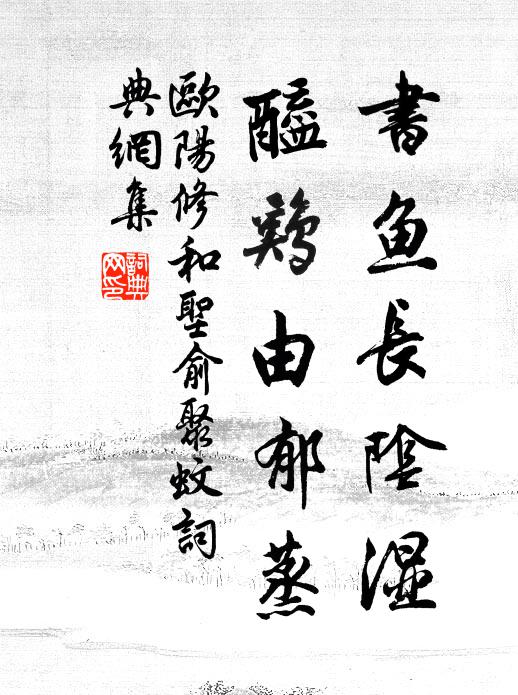 書魚長陰濕
醯鷄由郁蒸
歐陽修和聖俞聚蚊詞
典網集
詞典
网印